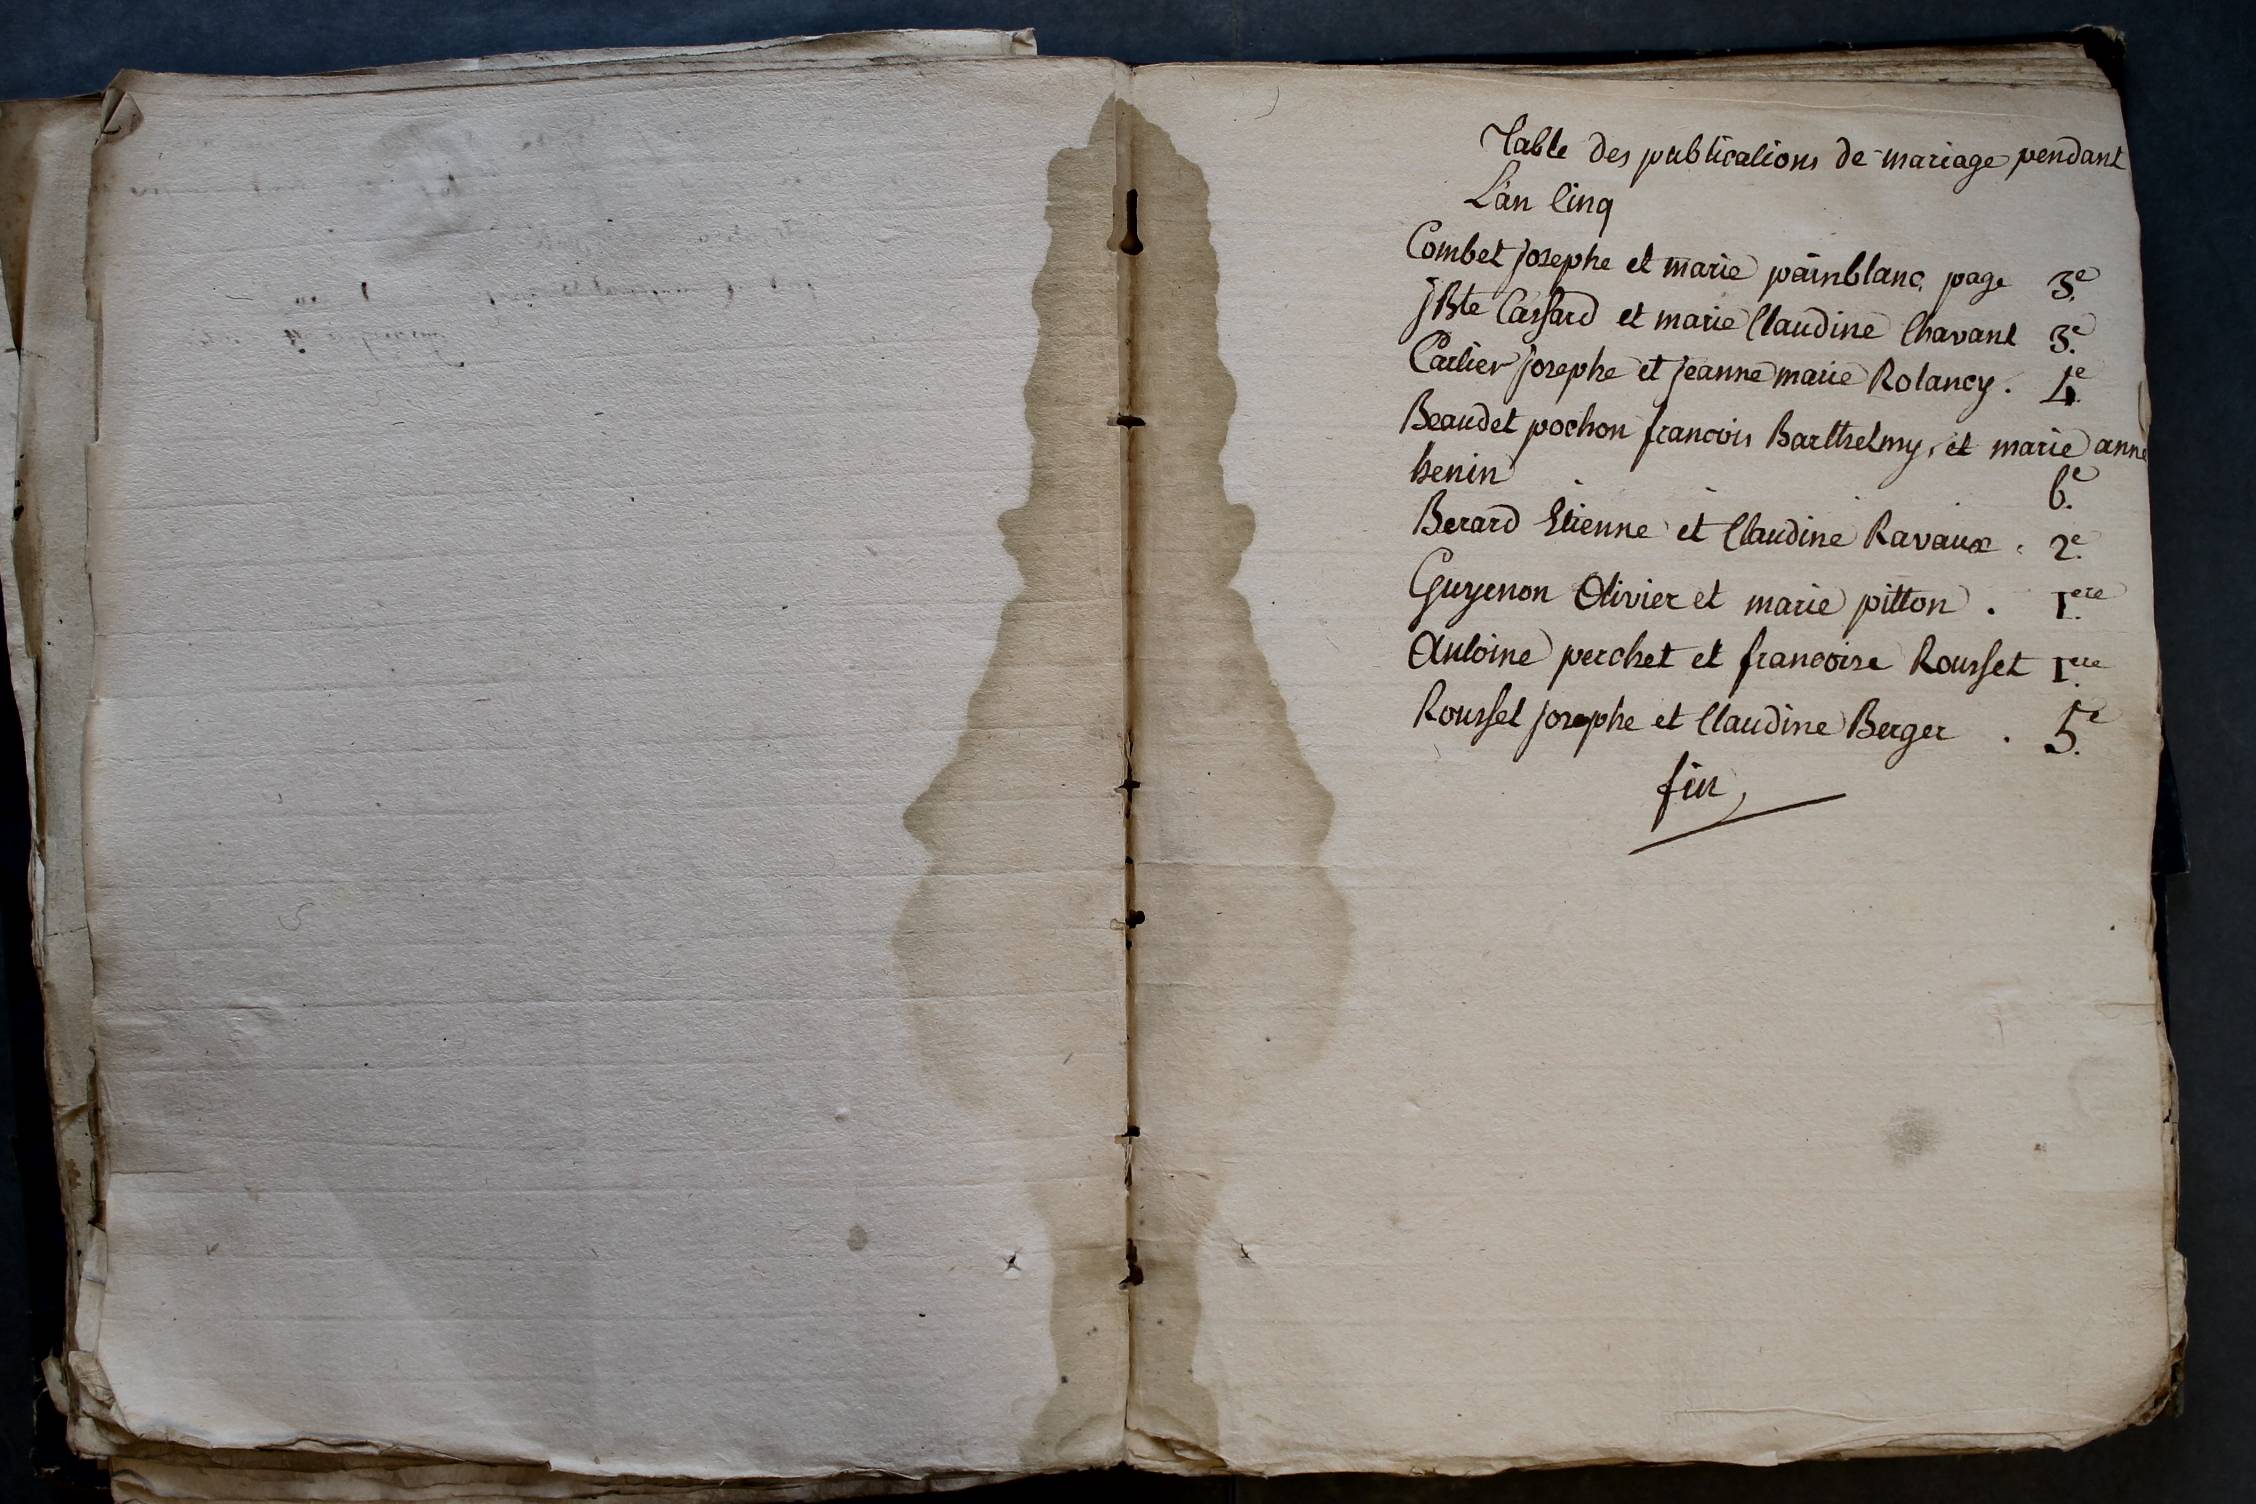 Table des publications de mariage pendant
L'an Cinq
Combet josephe et marie painblanc page 3e
jBte Cassard et marie Claudine Chavant 3e
Carlier josephe et jeanne marie Rolancy . 4e
Beaudet pochon francois Barthelmy et marie anne
henin 6e
Berard Etienne et Claudine Ravaux . 2e
Guyenon Olivier et marie pitton . 1ere
Antoine perchet et francoise Rousset 1ere
Rousset josephe et Claudine Berger . 5e
fin